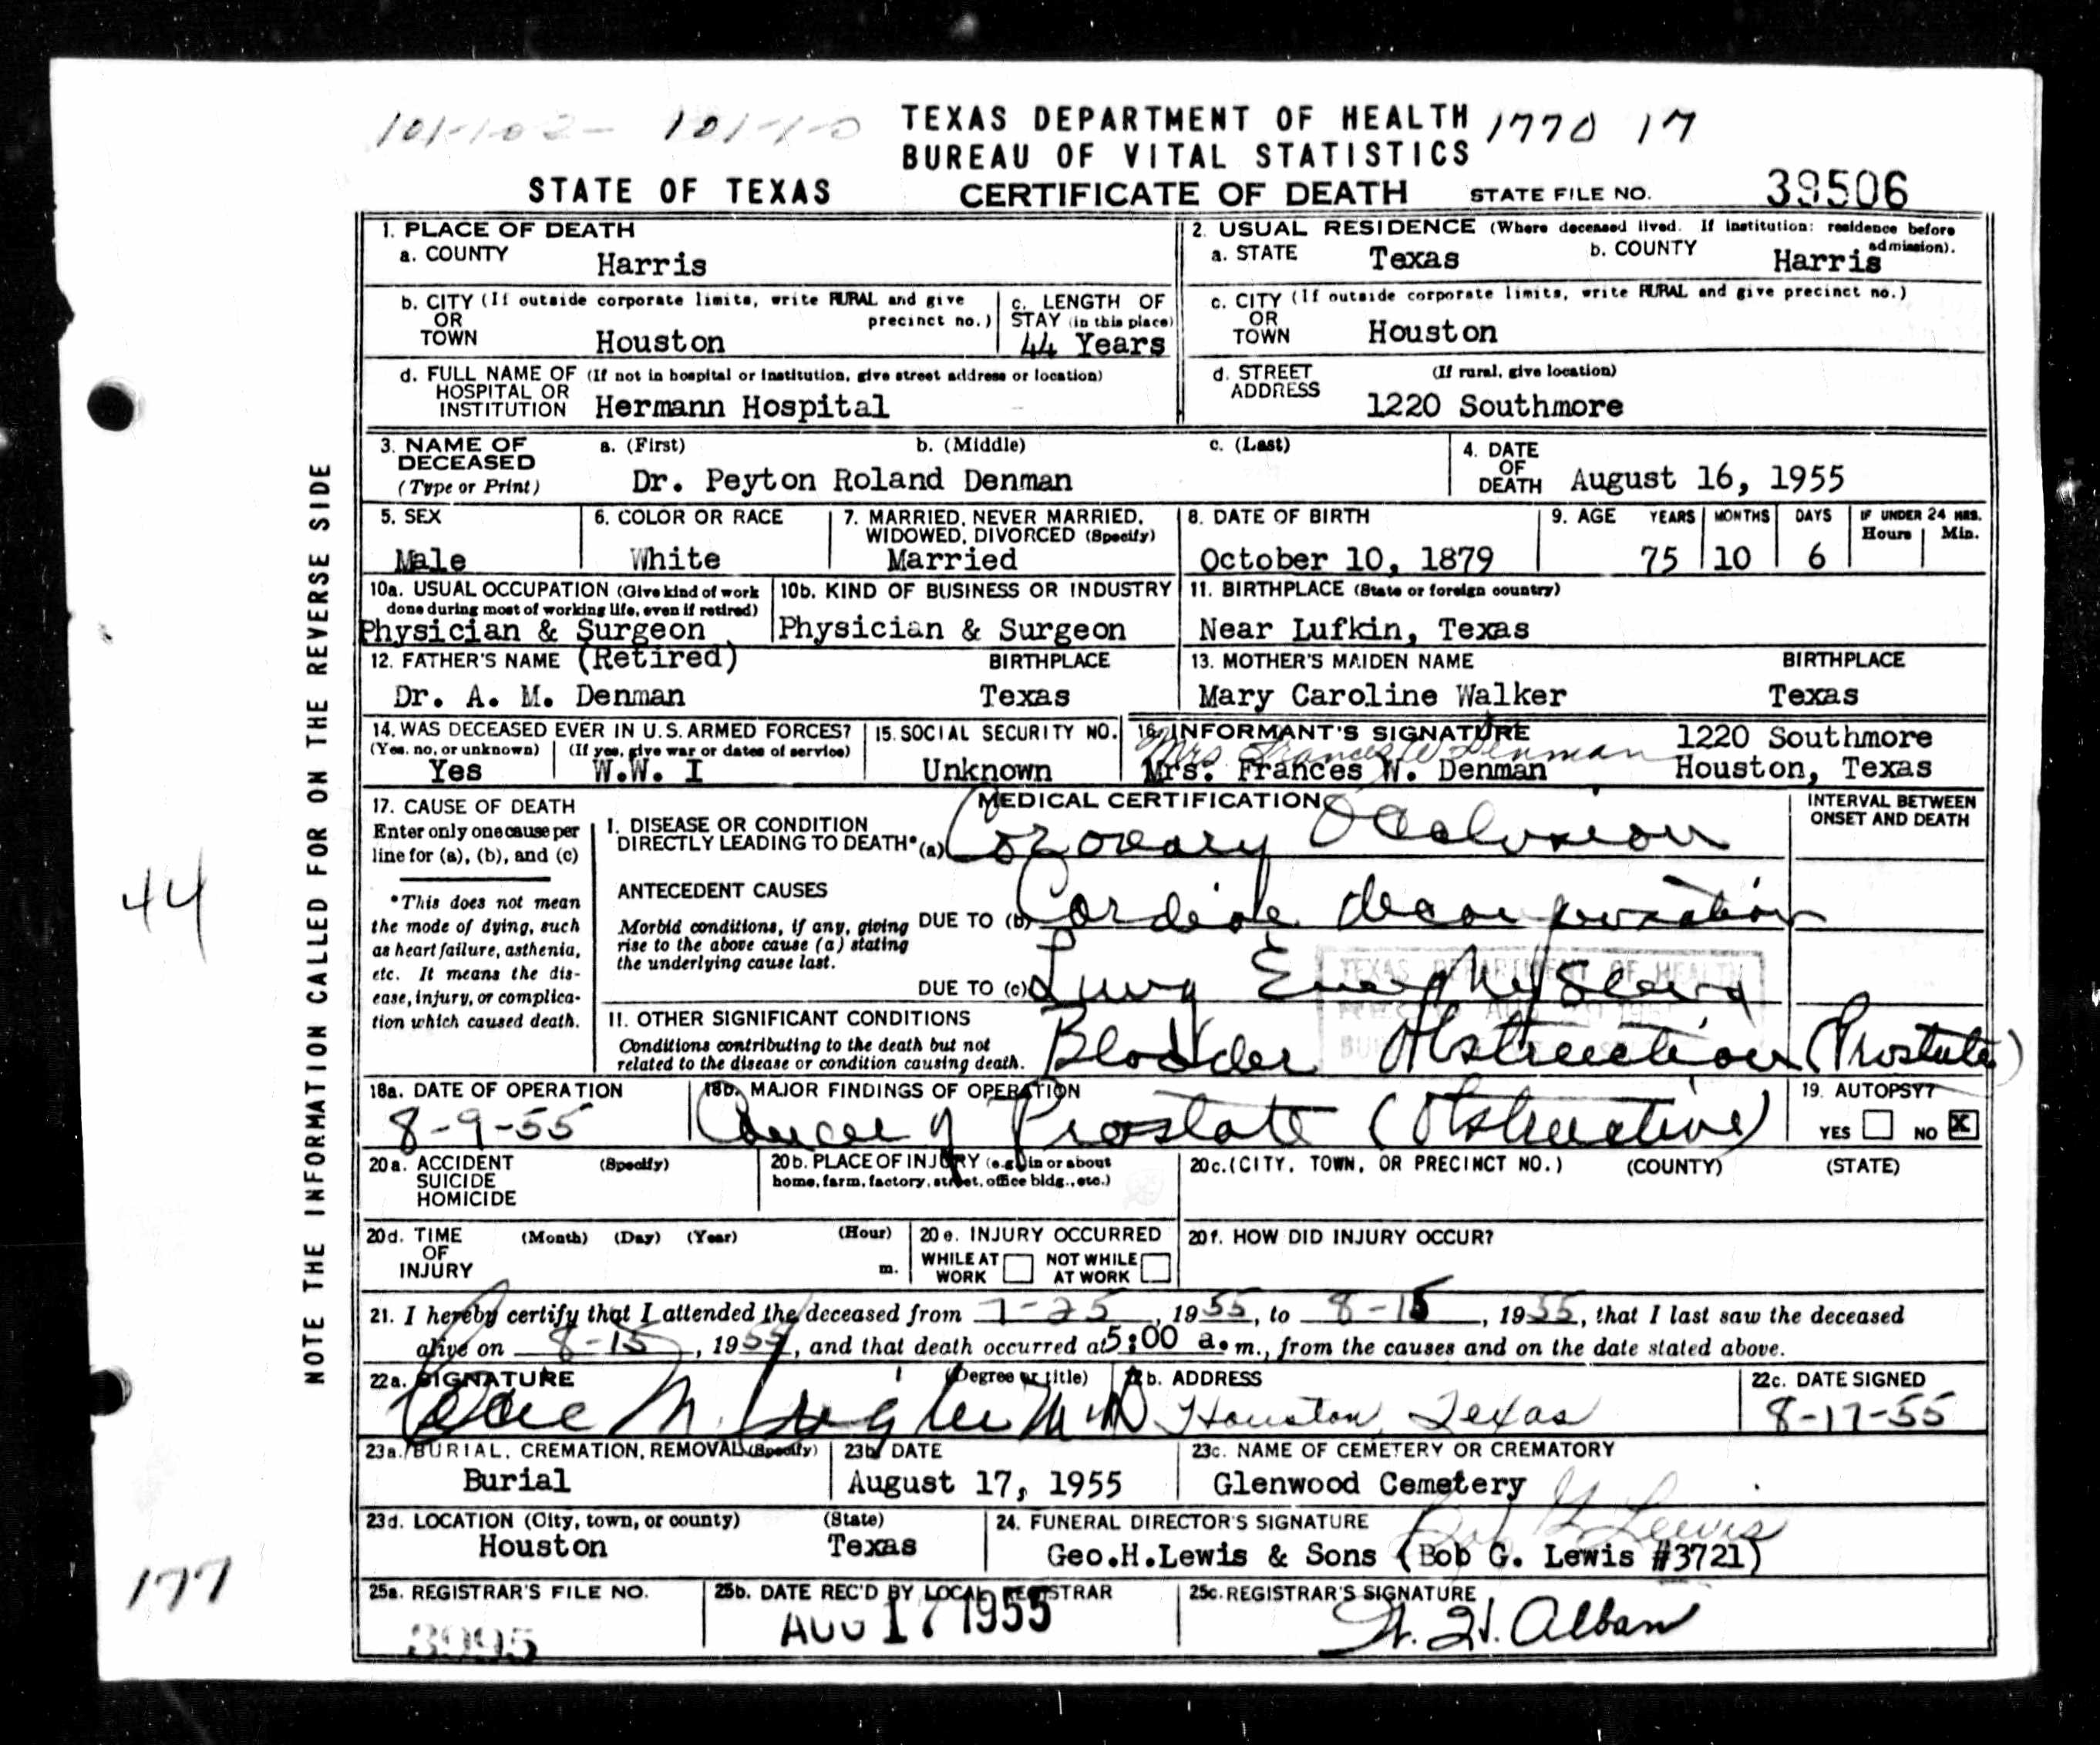 101-102- 101-1-0
TEXAS DEPARTMENT OF HEALTH 1770 17
BUREAU OF VITAL STATISTICS
STATE OF TEXAS CERTIFICATE OF DEATH STATE FILE NO. 39506
1. PLACE OF DEATH
a. COUNTY Harris
2. USUAL RESIDENCE (Where deceased lived. If institution: residence before admission).
a. STATE Texas b. COUNTY Harris
b. CITY (If outside corporate limits, write RURAL and give precinct no.)
OR
TOWN Houston
c. LENGTH OF
STAY (in this place)
44 Years
c. CITY (If outside corporate limits, write RURAL and give precinct no.)
OR
TOWN Houston
d. FULL NAME OF (If not in hospital or institution, give street address or location)
HOSPITAL OR
INSTITUTION Hermann Hospital
d. STREET (If rural, give location)
ADDRESS 1220 Southmore
3. NAME OF a. (First) b. (Middle) c. (Last)
DECEASED
(Type or Print) Dr. Peyton Roland Denman
4. DATE
OF
DEATH August 16, 1955
5. SEX
Male
6. COLOR OR RACE
White
7. MARRIED, NEVER MARRIED,
WIDOWED, DIVORCED (Specify)
Married
8. DATE OF BIRTH
October 10, 1879
9. AGE YEARS MONTHS DAYS IF UNDER 24 HRS.
Hours Min.
75 10 6
10a. USUAL OCCUPATION (Give kind of work
done during most of working life, even if retired)
Physician & Surgeon
(Retired)
10b. KIND OF BUSINESS OR INDUSTRY
Physician & Surgeon
11. BIRTHPLACE (State or foreign country)
Near Lufkin, Texas
12. FATHER'S NAME BIRTHPLACE
Dr. A. M. Denman Texas
13. MOTHER'S MAIDEN NAME BIRTHPLACE
Mary Caroline Walker Texas
14. WAS DECEASED EVER IN U.S. ARMED FORCES?
(Yes, no, or unknown) (If yes, give war or dates of service)
Yes W.W. I
15. SOCIAL SECURITY NO.
Unknown
16. INFORMANT'S SIGNATURE 1220 Southmore
Mrs. Frances W Denman
Mrs. Frances W. Denman Houston, Texas
17. CAUSE OF DEATH
Enter only one cause per
line for (a), (b), and (c)
*This does not mean
the mode of dying, such
as heart failure, asthenia,
etc. It means the dis-
ease, injury, or complica-
tion which caused death.
MEDICAL CERTIFICATION
INTERVAL BETWEEN
ONSET AND DEATH
I. DISEASE OR CONDITION
DIRECTLY LEADING TO DEATH* (a) Coronary Occlusion
ANTECEDENT CAUSES
Morbid conditions, if any, giving
rise to the above cause (a) stating
the underlying cause last.
DUE TO (b) Cardiac decompensation
DUE TO (c) Lung Emphysema
TEXAS DEPARTMENT OF HEALTH
II. OTHER SIGNIFICANT CONDITIONS
Conditions contributing to the death but not
related to the disease or condition causing death.
Bladder Obstruction (Prostate)
18a. DATE OF OPERATION
8-9-55
18b. MAJOR FINDINGS OF OPERATION
Cancer of Prostate (Obstructive)
19. AUTOPSY?
YES NO X
20a. ACCIDENT (Specify)
SUICIDE
HOMICIDE
20b. PLACE OF INJURY (e.g., in or about
home, farm, factory, street, office bldg., etc.)
20c. (CITY, TOWN, OR PRECINCT NO.) (COUNTY) (STATE)
20d. TIME (Month) (Day) (Year) (Hour)
OF
INJURY m.
20e. INJURY OCCURRED
WHILE AT WORK NOT WHILE AT WORK
20f. HOW DID INJURY OCCUR?
21. I hereby certify that I attended the deceased from 7-25, 1955, to 8-15, 1955, that I last saw the deceased
alive on 8-15, 1955, and that death occurred at 5:00 a.m., from the causes and on the date stated above.
22a. SIGNATURE (Degree or title)
M. D.
22b. ADDRESS
Houston, Texas
22c. DATE SIGNED
8-17-55
23a. BURIAL, CREMATION, REMOVAL (Specify)
Burial
23b. DATE
August 17, 1955
23c. NAME OF CEMETERY OR CREMATORY
Glenwood Cemetery
23d. LOCATION (City, town, or county) (State)
Houston Texas
24. FUNERAL DIRECTOR'S SIGNATURE
Bob G Lewis
Geo.H.Lewis & Sons (Bob G. Lewis #3721)
25a. REGISTRAR'S FILE NO.
3995
25b. DATE REC'D BY LOCAL REGISTRAR
AUG 17 1955
25c. REGISTRAR'S SIGNATURE
W. H. Alban
NOTE THE INFORMATION CALLED FOR ON THE REVERSE SIDE
44
177